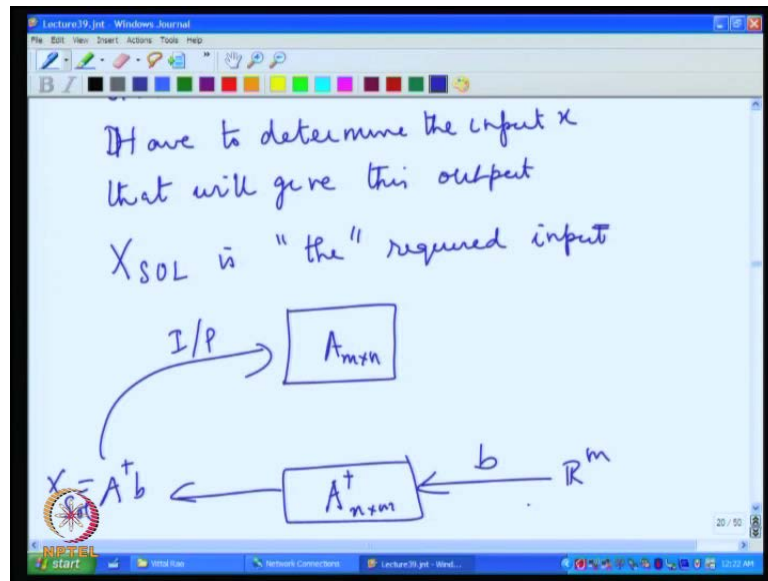 Lecture39.jnt - Windows Journal
File Edit View Insert Actions Tools Help
B I
Have to determine the input x
that will give this output
X_SOL is "the" required input
I/P
A_{m×n}
X_{Sol} = A^† b
A^†_{n×m}
b
ℝ^m
20 / 50
NPTEL
start Vittal Rao Network Connections Lecture39.jnt - Wind... 12:22 AM